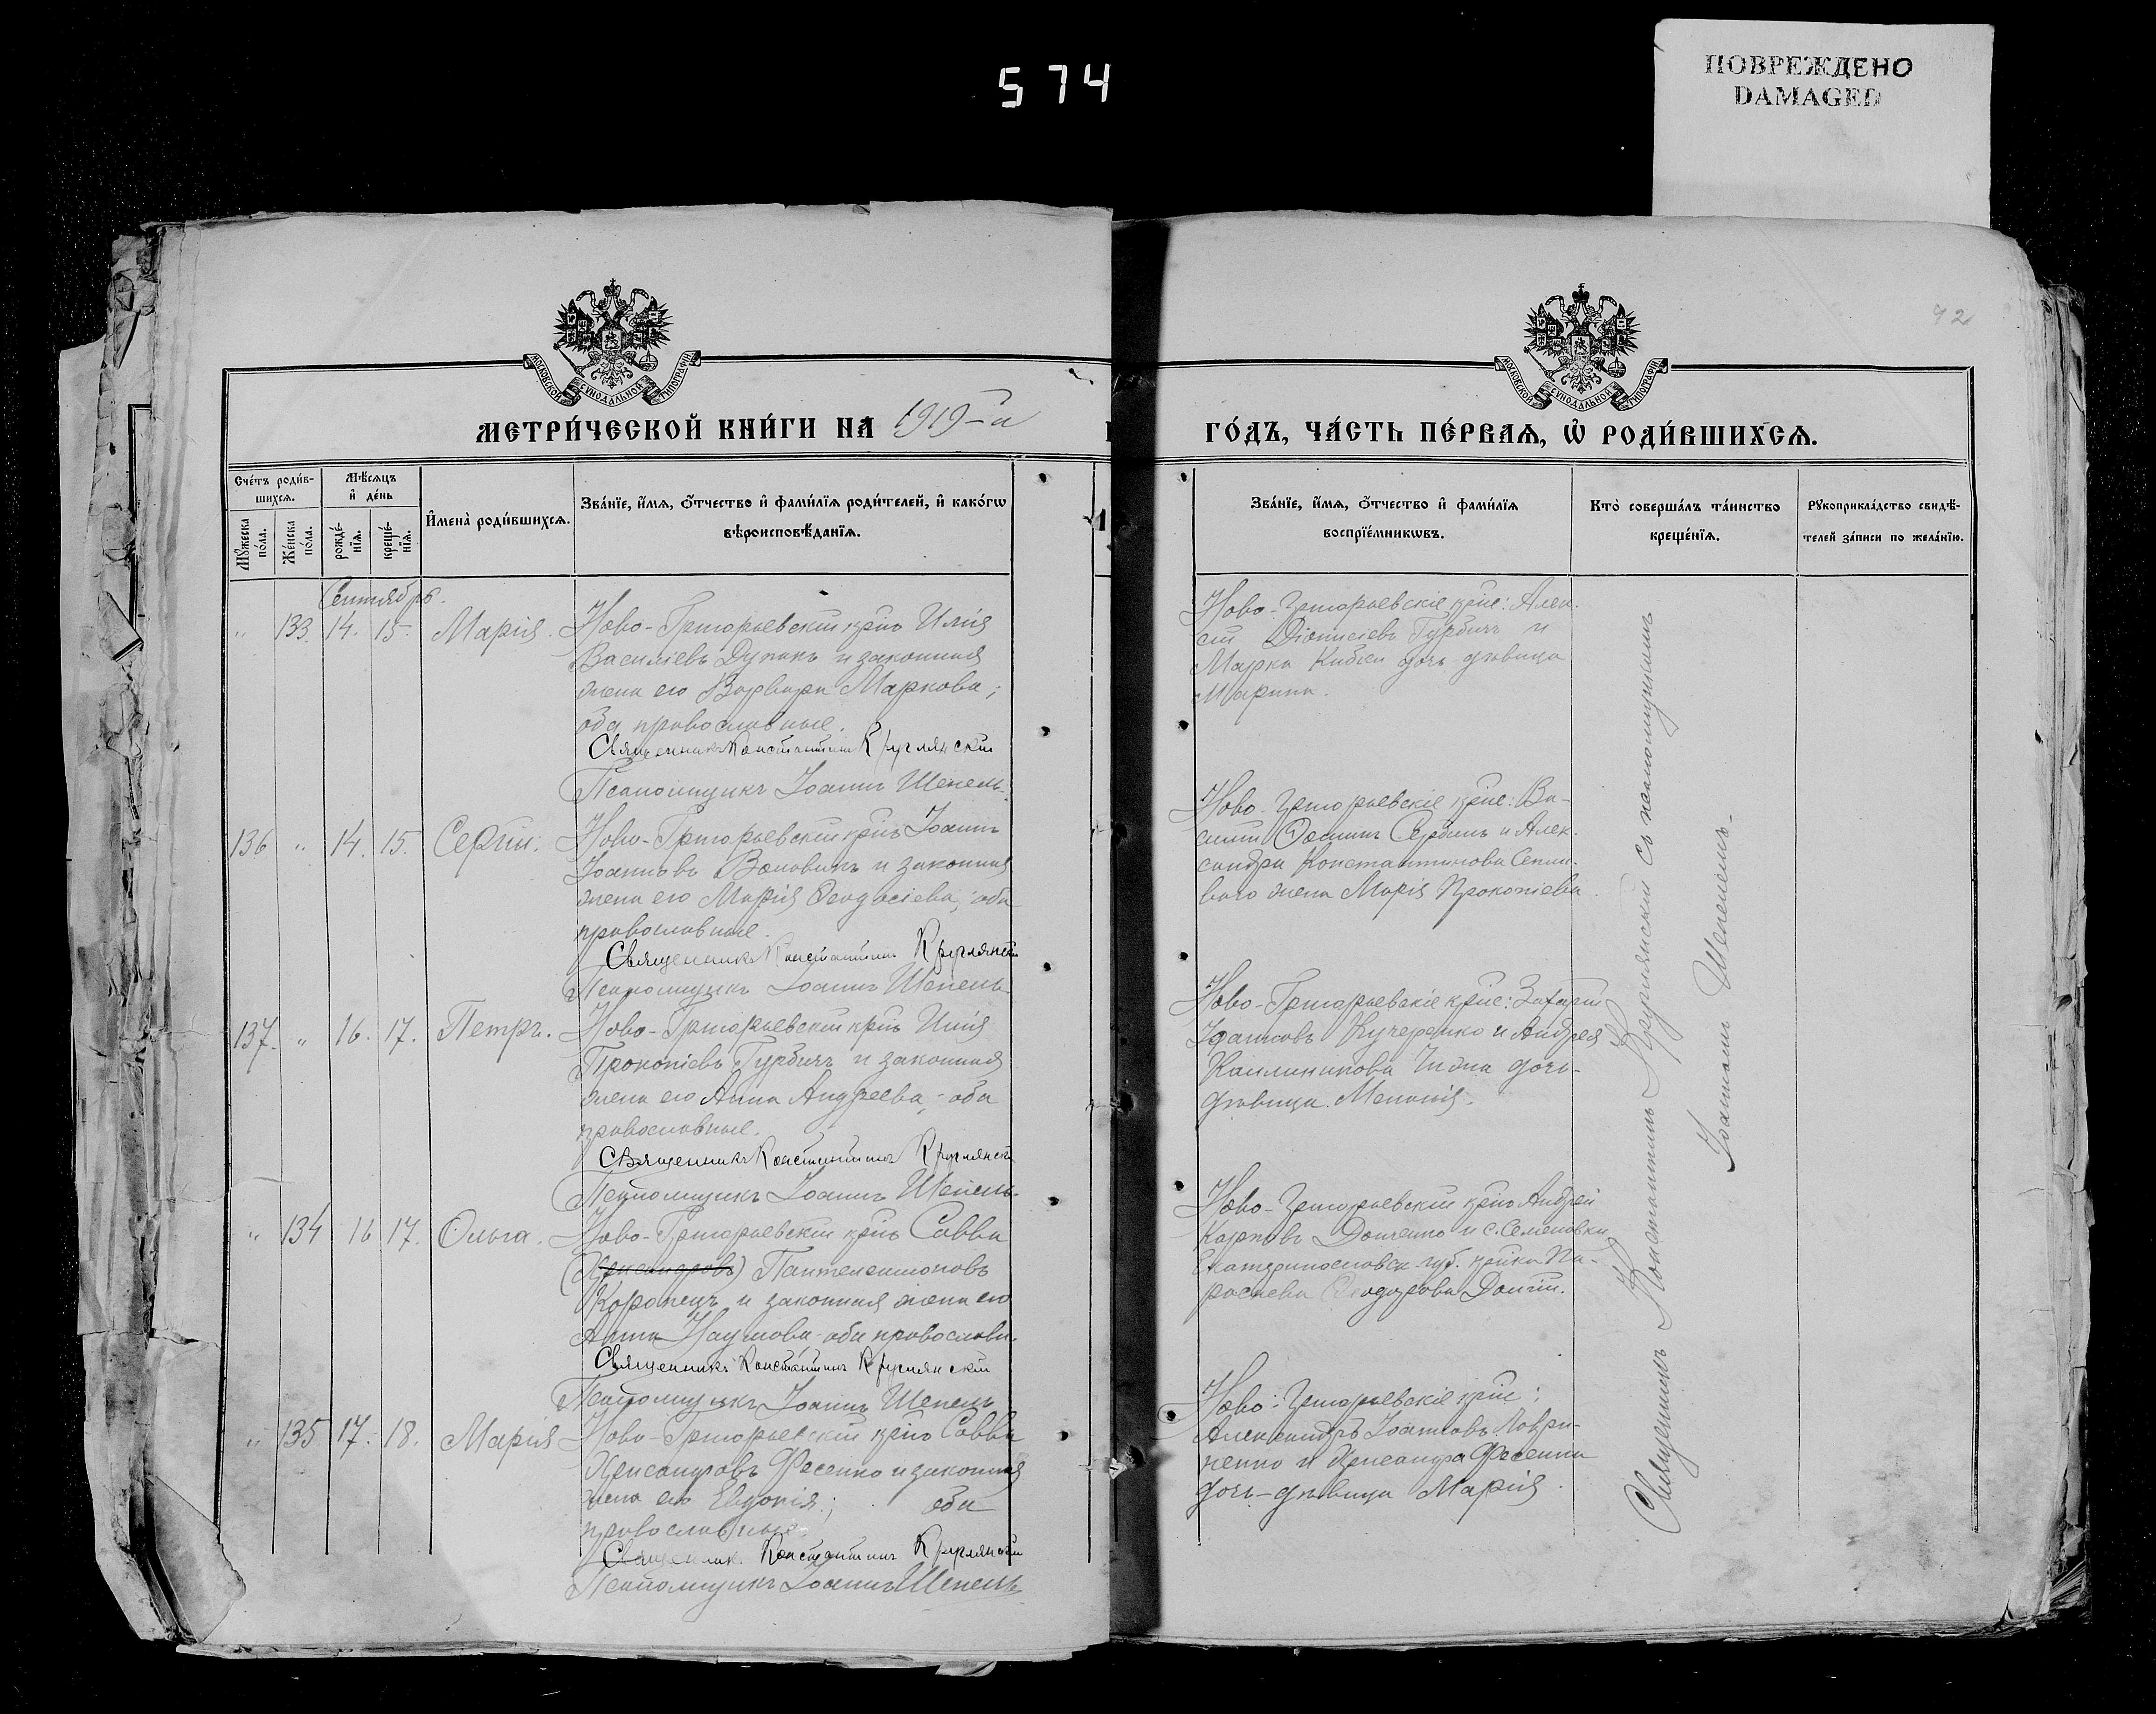 574
ПОВРЕЖДЕНО
DAMAGED
92
МОСКОВСКОЙ СУНОДАЛЬНОЙ ТИПОГРАФІИ
МОСКОВСКОЙ СУНОДАЛЬНОЙ ТИПОГРАФІИ
МЕТРИ́ЧЕСКОЙ КНИ́ГИ НА 1919-й
ГО́ДЪ, ЧА́СТЬ ПЕ́РВАѦ, Ѡ҆ РОДИ́ВШИХСѦ.
Сче́тъ роди́в-
шихсѧ.
Мꙋ́жеска по́ла.
Же́нска по́ла.
Мѣ́сѧцъ
и҆ де́нь
рожде́-
нїѧ.
креще́-
нїѧ.
И҆мена̀ роди́вшихсѧ.
Зва́нїе, и҆́мѧ, ѻ҆́тчество и҆ фами́лїѧ роди́телей, и҆ како́гѡ
вѣроисповѣ́данїѧ.
Зва́нїе, и҆́мѧ, ѻ҆́тчество и҆ фами́лїѧ
воспрїе́мникѡвъ.
Кто̀ соверша́лъ та́инство
креще́нїѧ.
Рꙋкоприкла́дство свидѣ́-
телей за́писи по жела́нїю.
Сентябрь.
" 133. 14. 15. Марія.
Ново-Григорьевскій кр҃нъ Илія
Василіевъ Дупакъ и законная
жена его Варвара Маркова;
оба православные.
Священникъ Константинъ Круглянскій
Псаломщикъ Іоаннъ Шепель.
Ново-Григорьевскіе кр҃не: Алек-
сій Діонисіевъ Гурбичъ и
Марка дочь дѣвица
Марина.
136 " 14. 15. Сергій.
Ново-Григорьевскій кр҃нъ Іоаннъ
Іоанновъ и законная
жена его Марія Ѳеодосіева; оба
православные.
Священникъ Константинъ Круглянскій
Псаломщикъ Іоаннъ Шепель.
Ново-Григорьевскіе кр҃не: Ва-
силій Сербинъ и Алек-
сандра Константинова
жена Марія Прокопіева.
137. " 16. 17. Петръ.
Ново-Григорьевскій кр҃нъ Илія
Прокопіевъ Гурбичъ и законная
жена его Анна Андреева; оба
православные.
Священникъ Константинъ Круглянскій
Псаломщикъ Іоаннъ Шепель.
Ново-Григорьевскіе кр҃не: Захарій
Іоанновъ Кучеренко и Андрея
Каллиникова дочь-
дѣвица Меланія.
" 134 16 17. Ольга.
Ново-Григорьевскій кр҃нъ Савва
Пантелеимоновъ
и законная жена его
Анна Наумова оба православн.
Священникъ Константинъ Круглянскій
Псаломщикъ Іоаннъ Шепель
Ново-Григорьевскій кр҃нъ Андрей
Карповъ Донченко и с. Семеновки
Екатеринославск. губ. кр҃нка Па-
раскева Ѳеодорова
" 135 17. 18. Марія
Ново-Григорьевскій кр҃нъ Савва
Хрисанфовъ Фесенко и законная
жена его Евдокія; оба
православные.
Священник. Константинъ Круглянскій
Псаломщикъ Іоаннъ Шепель
Ново-Григорьевскіе кр҃не:
Александръ Іоанновъ Лаври-
ненко и Хрисанфа Фесенка
дочь-дѣвица Марія.
Священникъ Константинъ Круглянскій съ псаломщикомъ
Іоанномъ Шепелемъ.